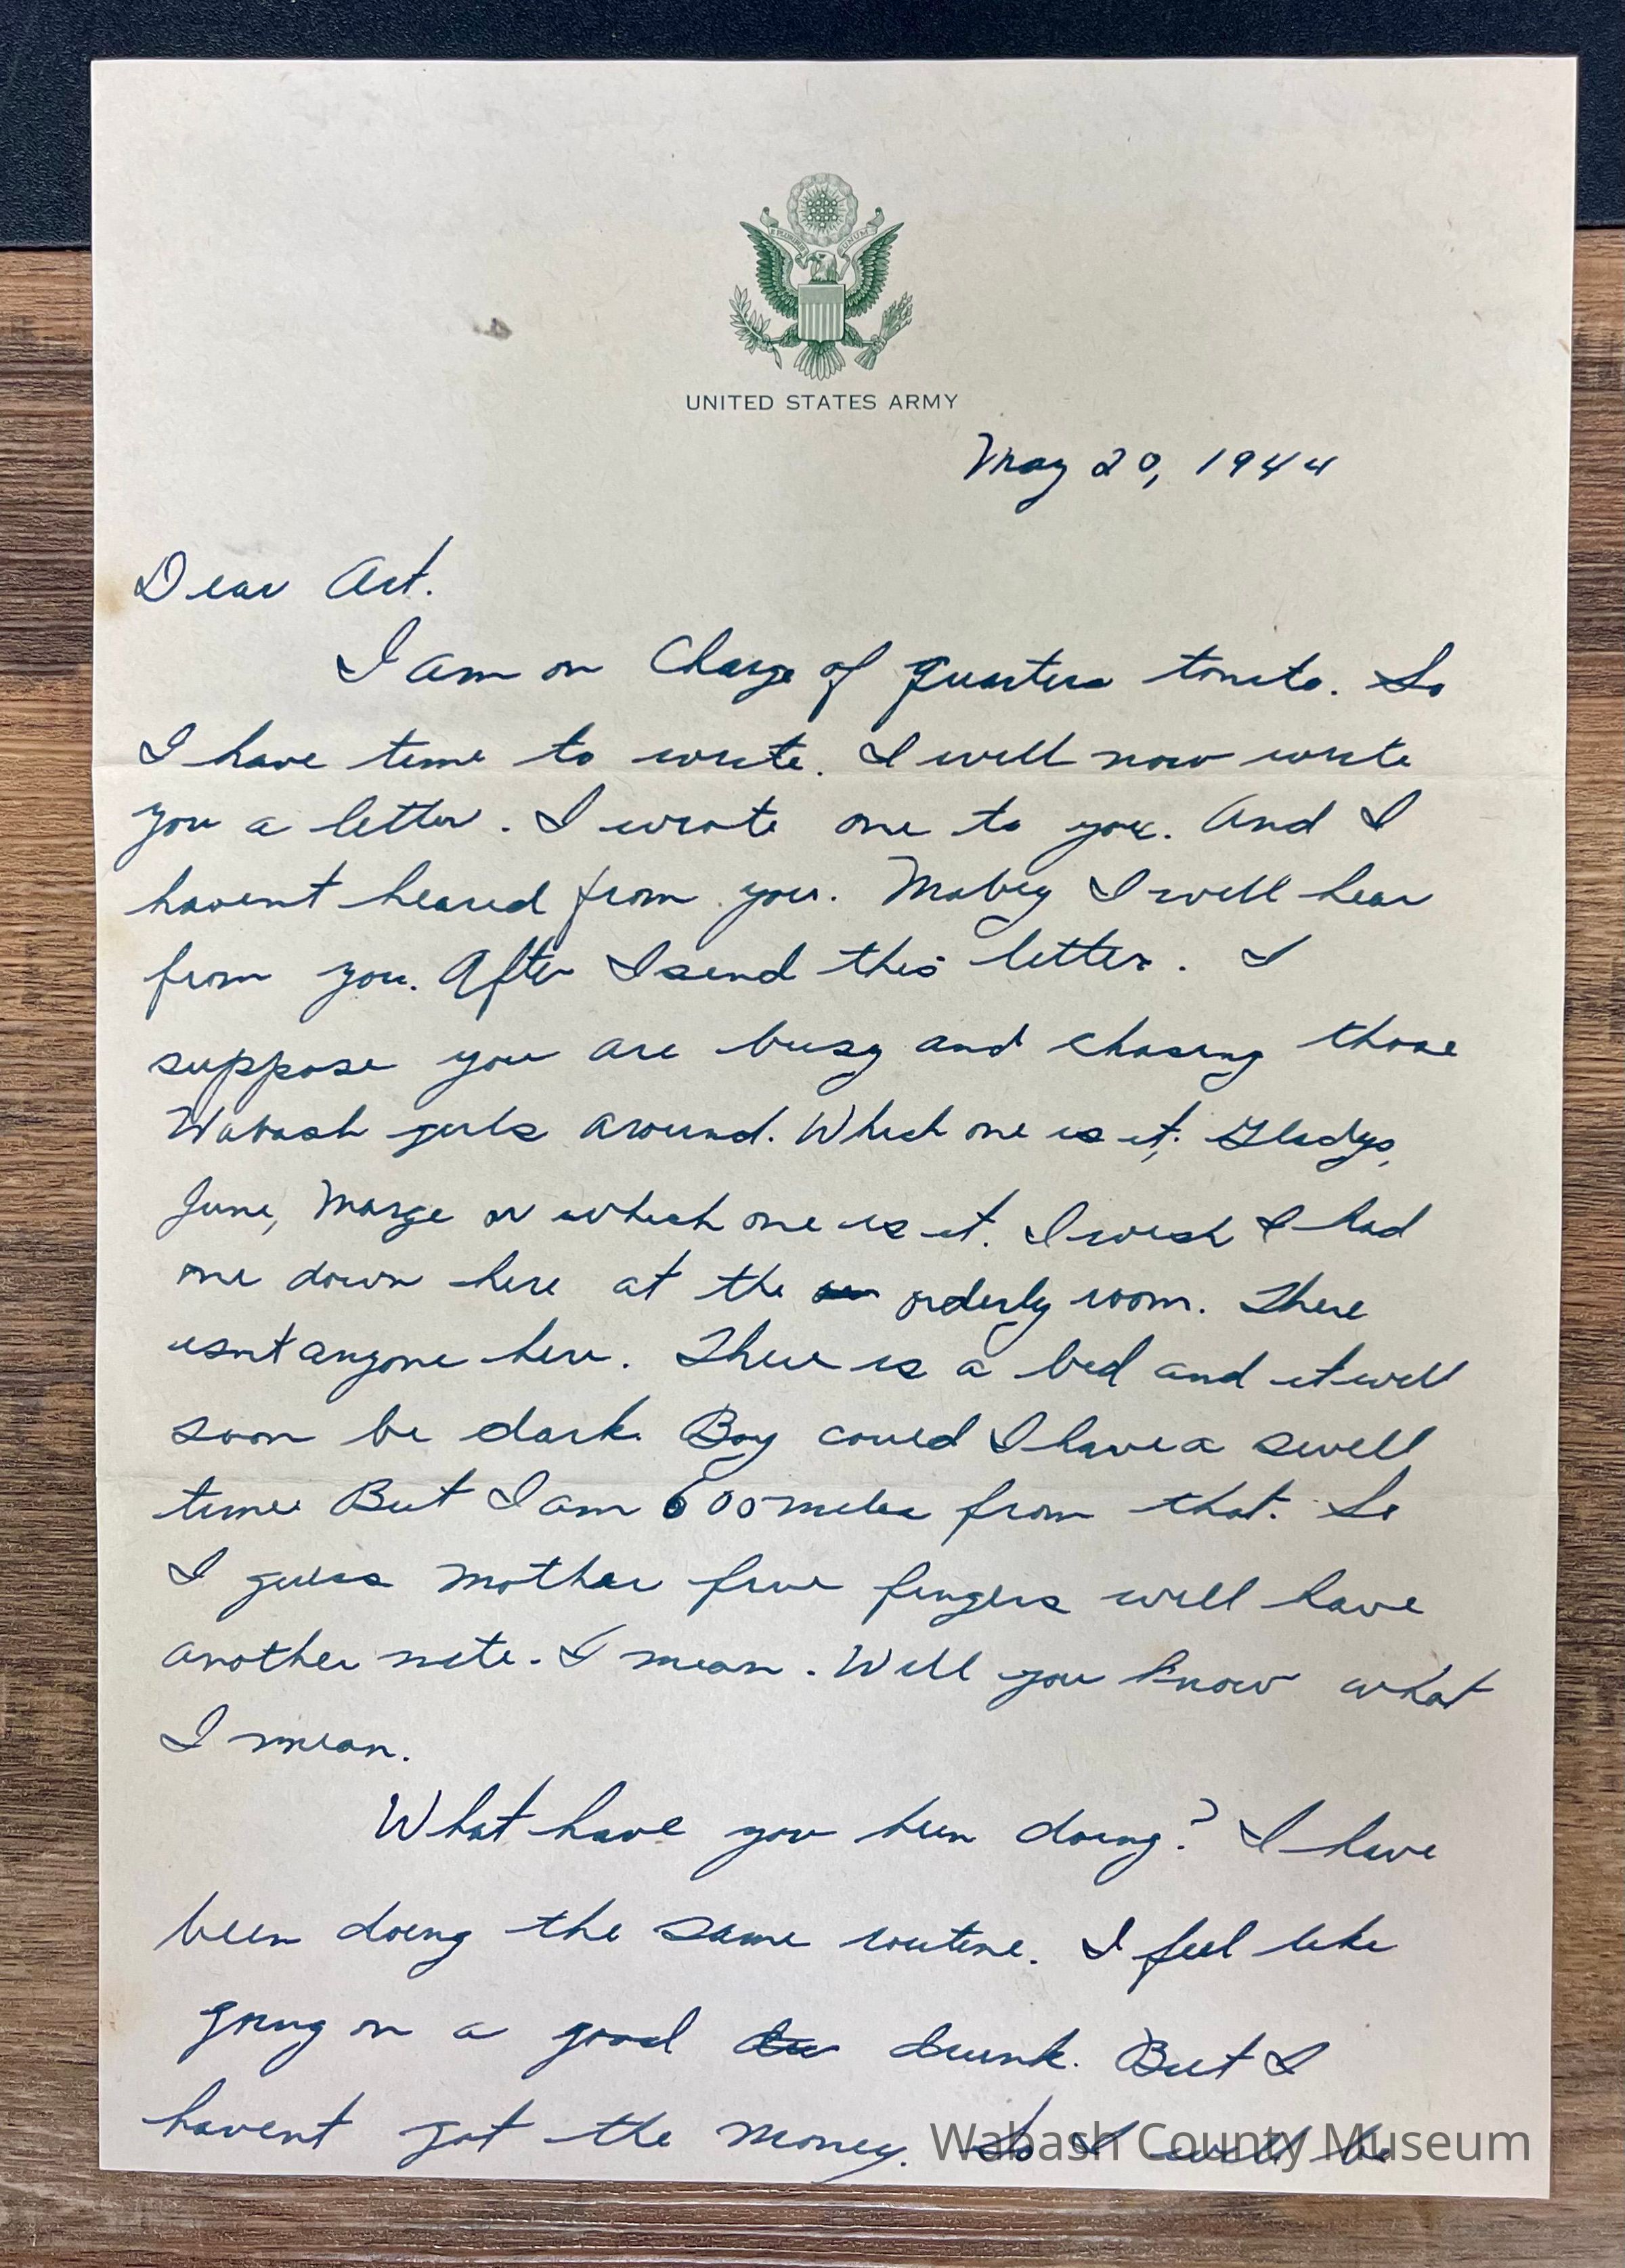 E PLURIBUS UNUM
UNITED STATES ARMY
May 20, 1944
Dear Art.
I am on Charge of quarters tonite. So
I have time to write. I will now write
you a letter. I wrote one to you. And I
havent heared from you. Mabey I will hear
from you. After I send this letter. I
suppose you are busy and chasing those
Wabash girls around. Which one is it, Gladys,
June, Marge or which one is it. I wish I had
one down here at the orderly room. There
isnt anyone here. There is a bed and it will
soon be dark. Boy could I have a swell
time But I am 600 miles from that. So
I guess mother five fingers will have
another nite. I mean. Well you know what
I mean.
What have you been doing? I have
been doing the same routine. I feel like
going on a good drunk. But I
havent got the money. So I will be
Wabash County Museum